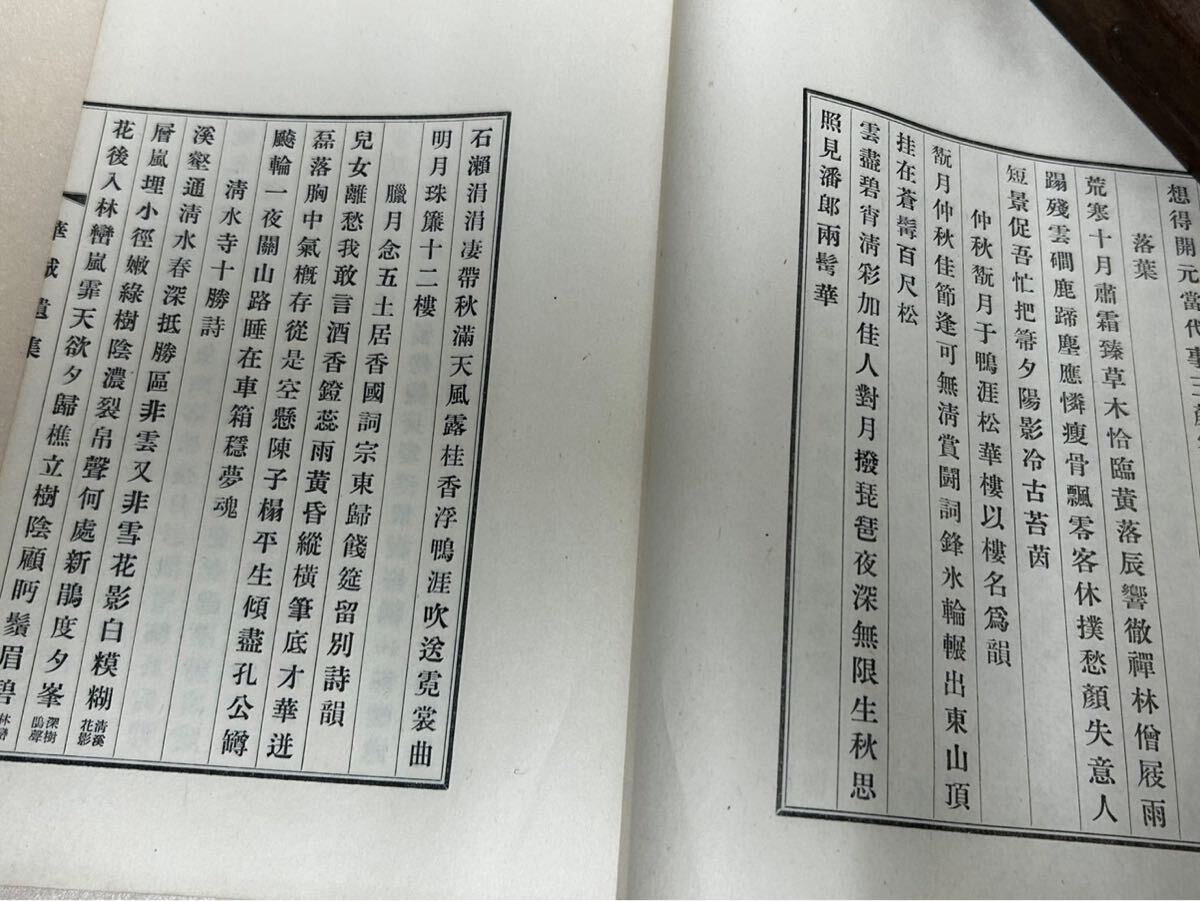 想得開元當代事
落葉
荒寒十月肅霜臻草木恰臨黃落辰響徹禪林僧屐雨
蹋殘雲磵鹿蹄塵應憐瘦骨飄零客休撲愁顏失意人
短景促吾忙把箒夕陽影冷古苔茵
仲秋翫月于鴨涯松華樓以樓名爲韻
翫月仲秋佳節逢可無淸賞鬪詞鋒氷輪輾出東山頂
挂在蒼髯百尺松
雲盡碧宵淸彩加佳人對月撥琵琶夜深無限生秋思
照見潘郞兩髩華
石瀨涓涓凄帶秋滿天風露桂香浮鴨涯吹送霓裳曲
明月珠簾十二樓
臘月念五土居香國詞宗東歸餞筵留別詩韻
兒女離愁我敢言酒香鐙蕊雨黃昏縱橫筆底才華迸
磊落胸中氣槪存從是空懸陳子榻平生傾盡孔公罇
飈輪一夜關山路睡在車箱穩夢魂
淸水寺十勝詩
溪壑通淸水春深抵勝區非雲又非雪花影白糢糊 淸溪花影
層嵐埋小徑嫩綠樹陰濃裂帛聲何處新鵑度夕峯 深樹鵑聲
花後入林巒嵐霏天欲夕歸樵立樹陰顧眄鬚眉碧 林巒
遺集